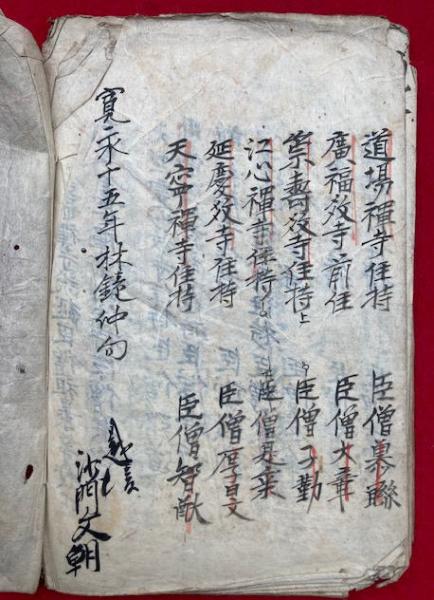 道場禪寺住持 臣僧慕聯
廣福教寺前住 臣僧大章
崇壽教寺住持 臣僧子勤
江心禪寺住持 臣僧
延慶教寺住持 臣僧
天寧禪寺住持 臣僧智猷
寛永十五年林鐘仲旬
沙門文朝